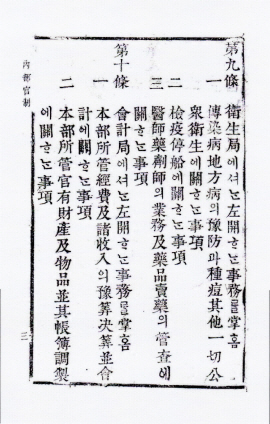 第九條 衛生局에셔ᄂᆞᆫ左開ᄒᆞᄂᆞᆫ事務ᄅᆞᆯ掌홈
一 傳染病地方病의豫防과種痘其他一切公
衆衛生에關ᄒᆞᄂᆞᆫ事項
二 檢疫停船에關ᄒᆞᄂᆞᆫ事項
三 醫師藥劑師의業務及藥品賣藥의管査에
關ᄒᆞᄂᆞᆫ事項
第十條 會計局에셔ᄂᆞᆫ左開ᄒᆞᄂᆞᆫ事務ᄅᆞᆯ掌홈
一 本部所管經費及諸收入의豫筭决筭並會
計에關ᄒᆞᄂᆞᆫ事項
二 本部所管官有財產及物品並其帳簿調製
에關ᄒᆞᄂᆞᆫ事項
內部官制
三